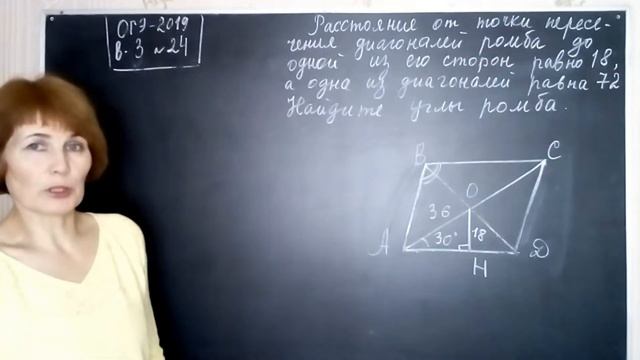 ОГЭ-2019
В. 3 №24
Расстояние от точки пересе-
чения диагоналей ромба до
одной из его сторон равно 18,
а одна из диагоналей равна 72
Найдите углы ромба.
B
C
O
36
A
30°
18
D
H